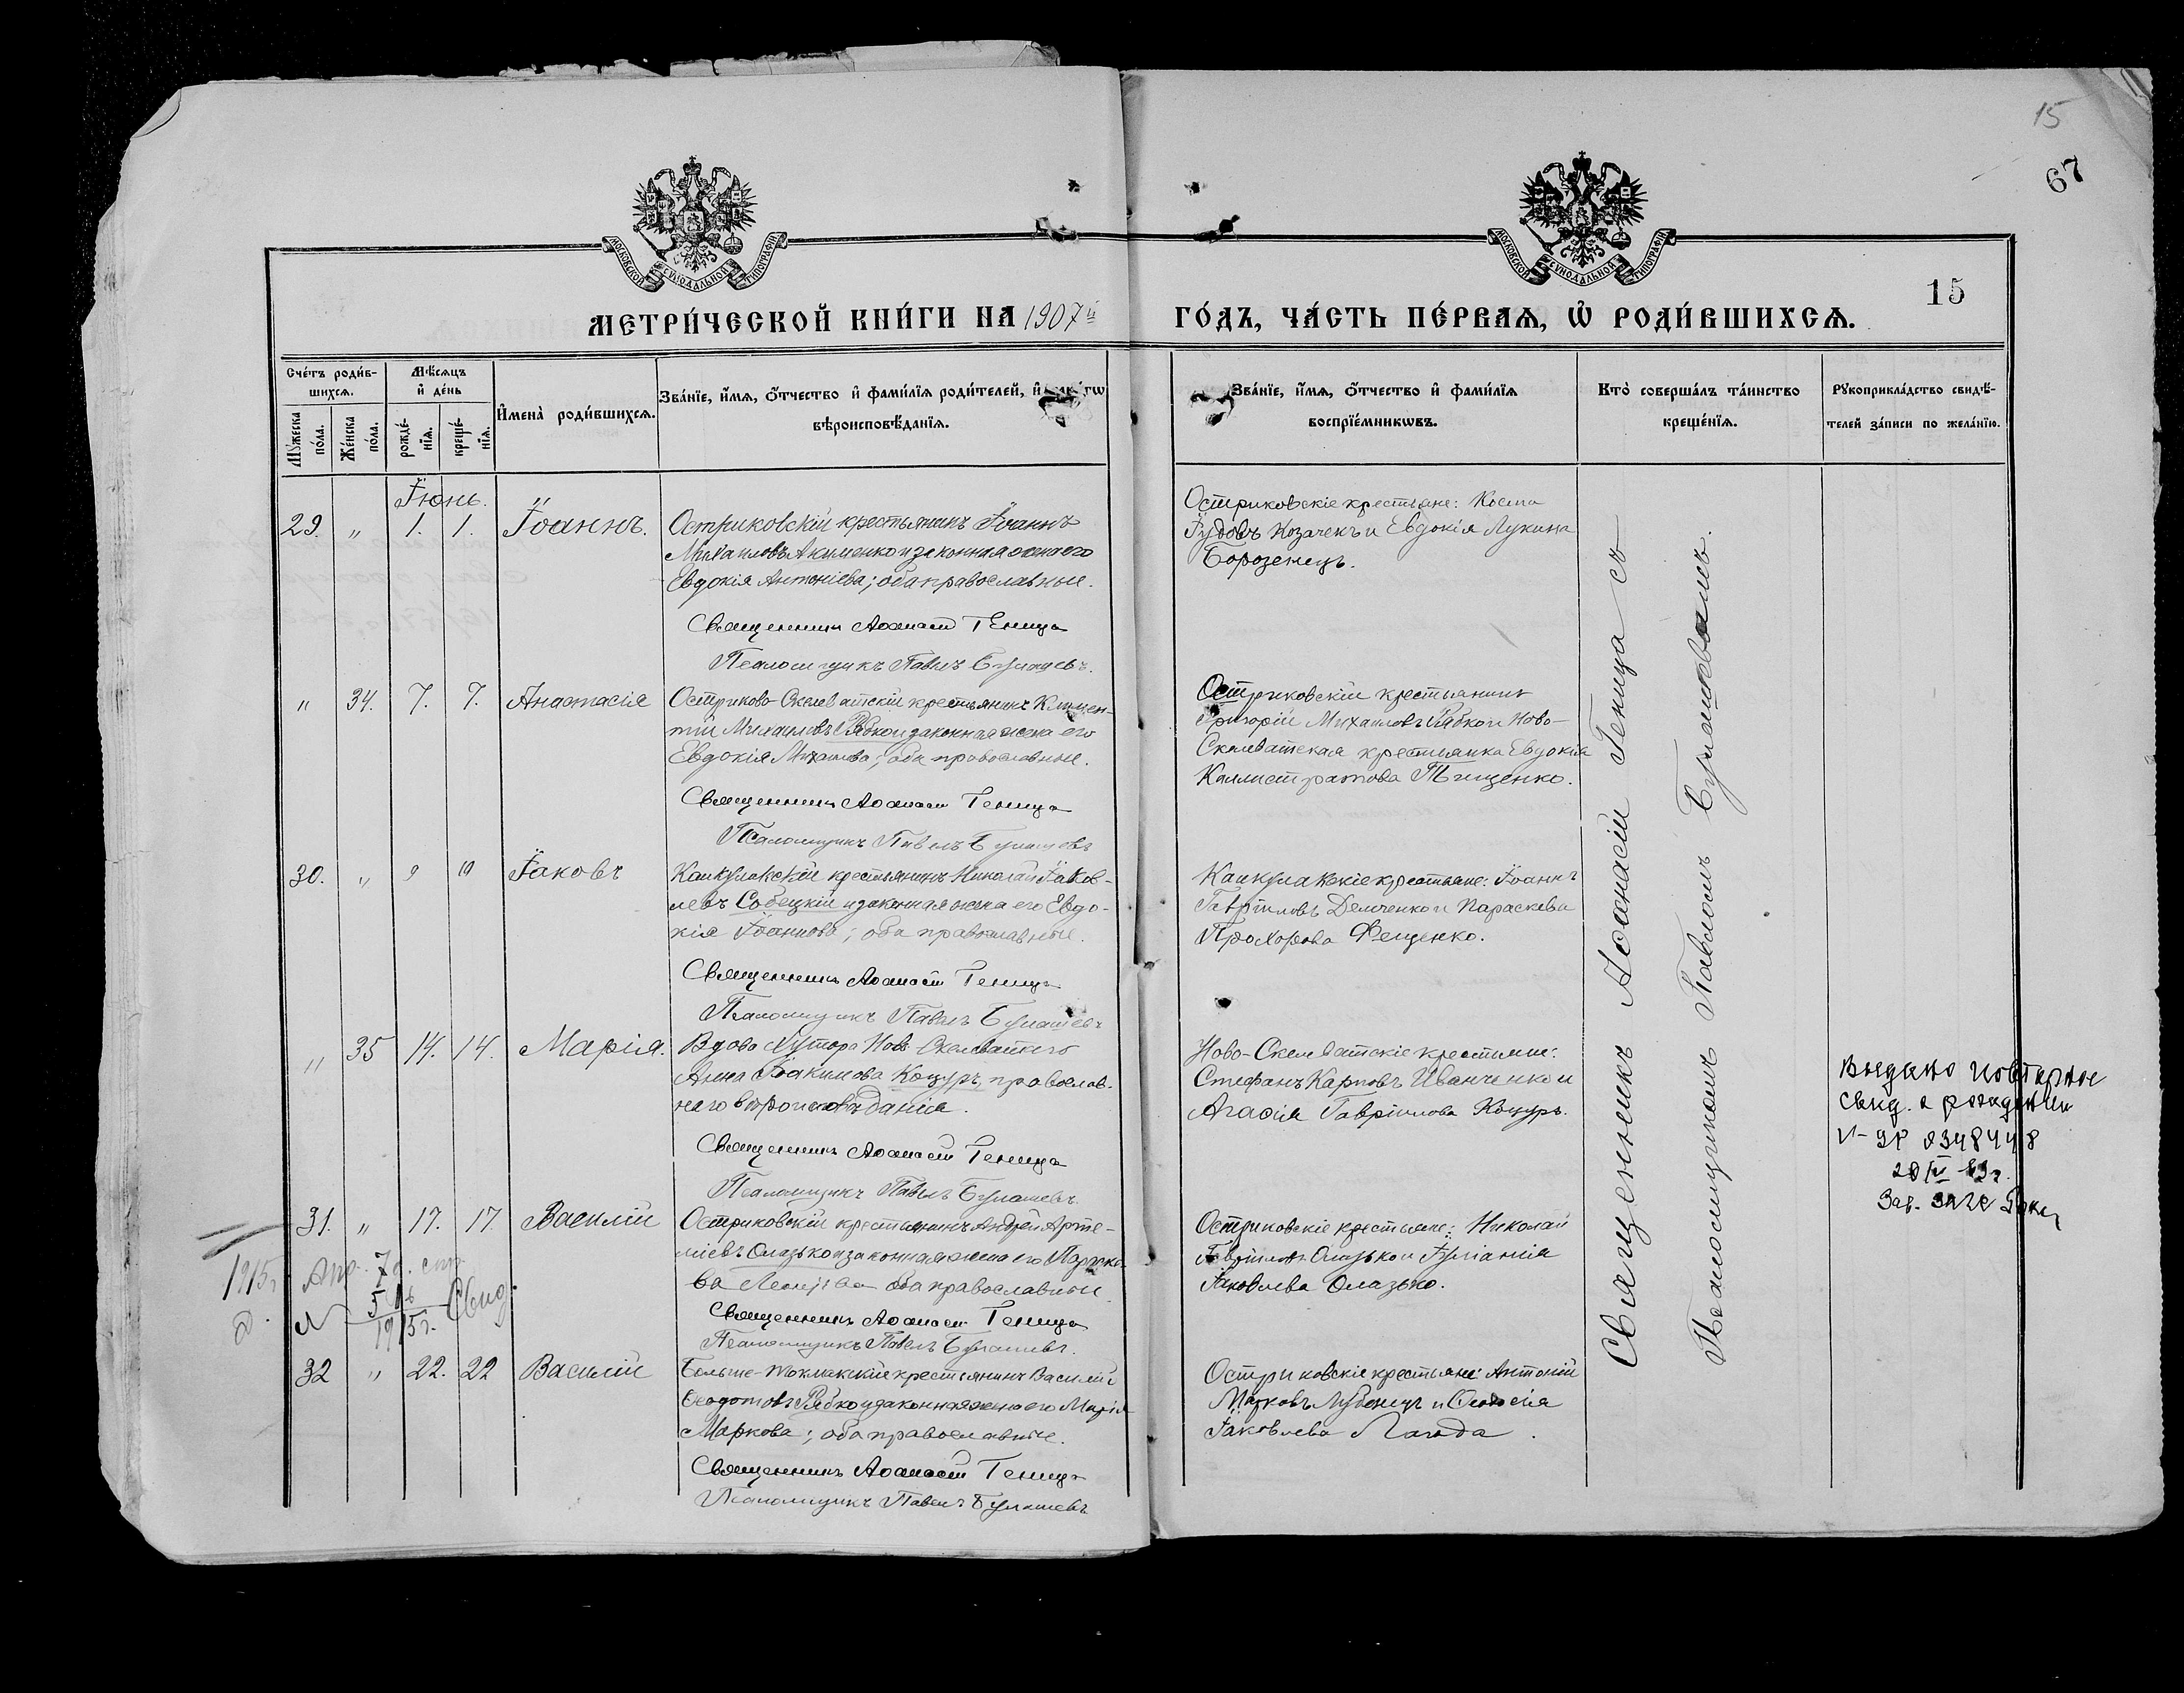 15
67
15
МОСКОВСКОЙ СѴНОДАЛЬНОЙ ТИПОГРАФІИ
МОСКОВСКОЙ СѴНОДАЛЬНОЙ ТИПОГРАФІИ
МЕТРИ́ЧЕСКОЙ КНИ́ГИ НА 1907й ГО́ДЪ, ЧА́СТЬ ПЕ́РВАѦ, Ѡ҆ РОДИ́ВШИХСѦ.
Сче́тъ роди́в-
шихсѧ.
Мѣ́сѧцъ
и҆ де́нь
Мꙋ́жеска
по́ла.
Же́нска
по́ла.
рожде́-
нїѧ.
креще́-
нїѧ.
И҆мена̀ роди́вшихсѧ.
Зва́нїе, и҆́мѧ, ѻ҆́тчество и҆ фами́лїѧ роди́телей, и҆
вѣроисповѣ́данїѧ.
Зва́нїе, и҆́мѧ, ѻ҆́тчество и҆ фами́лїѧ
воспрїе́мникѡвъ.
Кто̀ соверша́лъ та́инство
креще́нїѧ.
Рꙋкоприкла́дство свидѣ́-
телей за́писи по жела́нїю.
Іюнь.
29. " 1. 1. Іоаннъ.
Остриковскій крестьянинъ Іоаннъ
Михаиловъ Акименко и законная жена его
Евдокія Антоніева; оба православные.
Священникъ Аѳанасій Геница
Псаломщикъ Павелъ Булашевъ.
Остриковскіе крестьяне: Косма
Козачекъ и Евдокія Лукина
Борозенецъ.
" 34. 7. 7. Анастасія
Остриково-Скелеватскій крестьянинъ Климен-
тій Михаиловъ Рябко и законная жена его
Евдокія Михаилова; оба православные.
Священникъ Аѳанасій Геница
Псаломщикъ Павелъ Булашевъ
Остриковскій крестьянинъ
Григорій Михаиловъ Рябко и Ново-
Скелеватская крестьянка Евдокія
Каллистратова Тищенко.
30. " 9 10 Іаковъ
Канкулакскій крестьянинъ Николай Іаков-
левъ Собецкій и законная жена его Евдо-
кія Іоаннова; оба православные.
Священникъ Аѳанасій Геница
Псаломщикъ Павелъ Булашевъ
Канкулакскіе крестьяне: Іоаннъ
Гавріиловъ Демченко и Параскева
Прохорова Фещенко.
" 35 14. 14. Марія.
Вдова хутора Ново-Скелеваткаго
Анна Іоакимова Коцуръ, православ-
наго вѣроисповѣданія.
Священникъ Аѳанасій Геница
Псаломщикъ Павелъ Булашевъ.
Ново-Скелеватскіе крестьяне:
Стефанъ Карповъ Иванченко и
Агаѳія Гавріилова Коцуръ.
Выдано повторное
свид. о рождении
Зав. ЗАГС
31. " 17. 17. Василій
Остриковскій крестьянинъ Андрей Арте-
міевъ Олазько и законная жена его Параске-
ва оба православные.
Священникъ Аѳанасій Геница
Псаломщикъ Павелъ Булашевъ.
Остриковскіе крестьяне: Николай
Гавріиловъ Олазько и Іуліанія
Іаковлева Олазько.
1915г. Апр. 7 д.
№ 1915г. Свид.
32 " 22. 22 Василій
Больше-Токмакскій крестьянинъ Василій
Ѳеодотовъ Рябко и законная жена его Марія
Маркова; оба православные.
Священникъ Аѳанасій Геница
Псаломщикъ Павелъ Булашевъ
Остриковскіе крестьяне: Антоній
Марковъ Лубенецъ и
Іаковлева Лагода.
Священникъ Аѳанасій Геница съ
Псаломщикомъ Павломъ Булашевымъ.